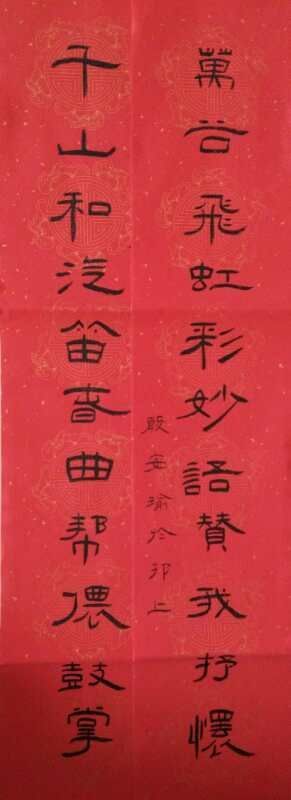 萬谷飛虹彩妙語贊我抒懷
千山和汽笛音曲帮儂鼓掌
殷安瑜於邗上